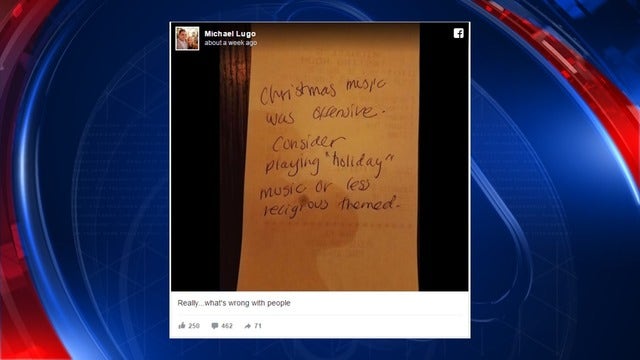 Michael Lugo
about a week ago
Christmas music
was offensive.
Consider
playing "holiday"
music or less
religious themed.
Really...what's wrong with people
250 462 71